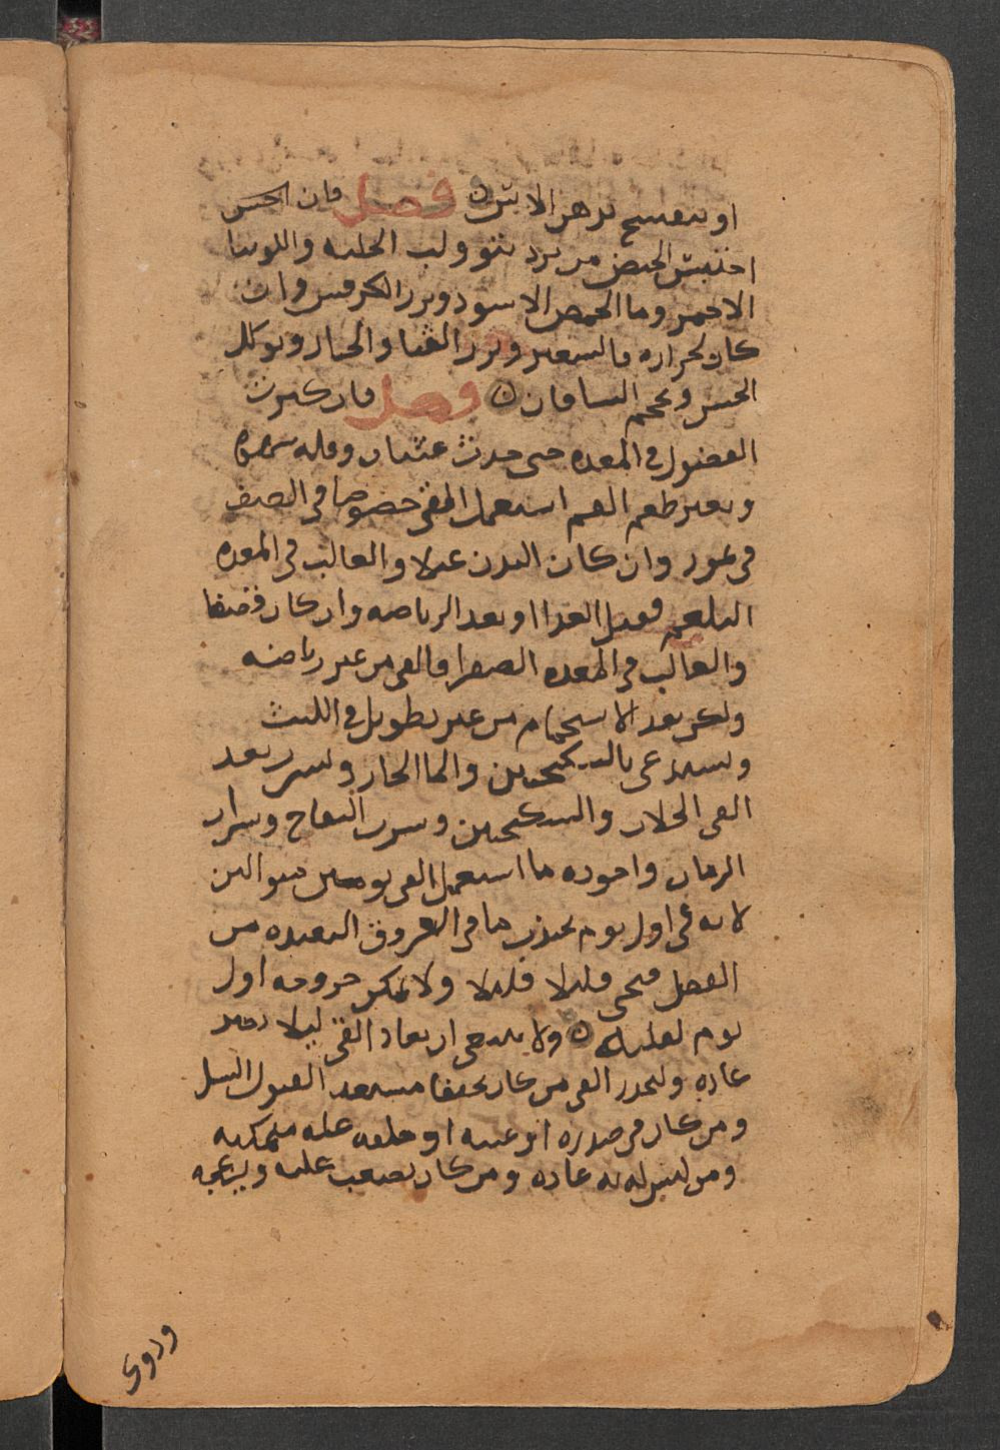 او بنفسج بدهن الايرسا فصل فان احتبس
احتبس الحيض من برد فتو ولب الحلبه واللوبيا
الاحمر وما الحمص الاسود وبزر الكرفس وان
كان لحراره فالشعير وبزر القثا والخيار وتوكل
الخس وتحجم الساقان فصل فان كثرت
الفضول في المعده حتى حدث غثيان وقله شهوه
وتغير طعم الفم استعمل القي خصوصا في الصيف
في تموز وان كان البدن عبلا والغالب في المعده
البلغم فقبل الغدا او بعد الرياضه وان كان قضيفا
والغالب في المعده الصفرا فالقي من غير رياضه
ولكن بعد الاستحمام من غير تطويل في اللبث
ويستدعى بالسكنجبين والما الحار ويشرب بعد
القي الجلاب والسكنجبين وشراب التفاح وشراب
الرمان واجوده ما استعمل القي يومين متواليين
لانه في اول يوم يجذب ما في العروق البعيده من
الفضل فيجي قليلا قليلا ولا يمكن خروجه اول
يوم لغلظه ولا ينبغي ان يعاد القي ليلا يصير
عاده وليحذر القي من كان نحيفا مستعد القبول السل
ومن كان في صدره او عينه او حلقه عله متمكنه
ومن ليس له به عاده ومن كان يصعب عليه ويزعجه
ودوى